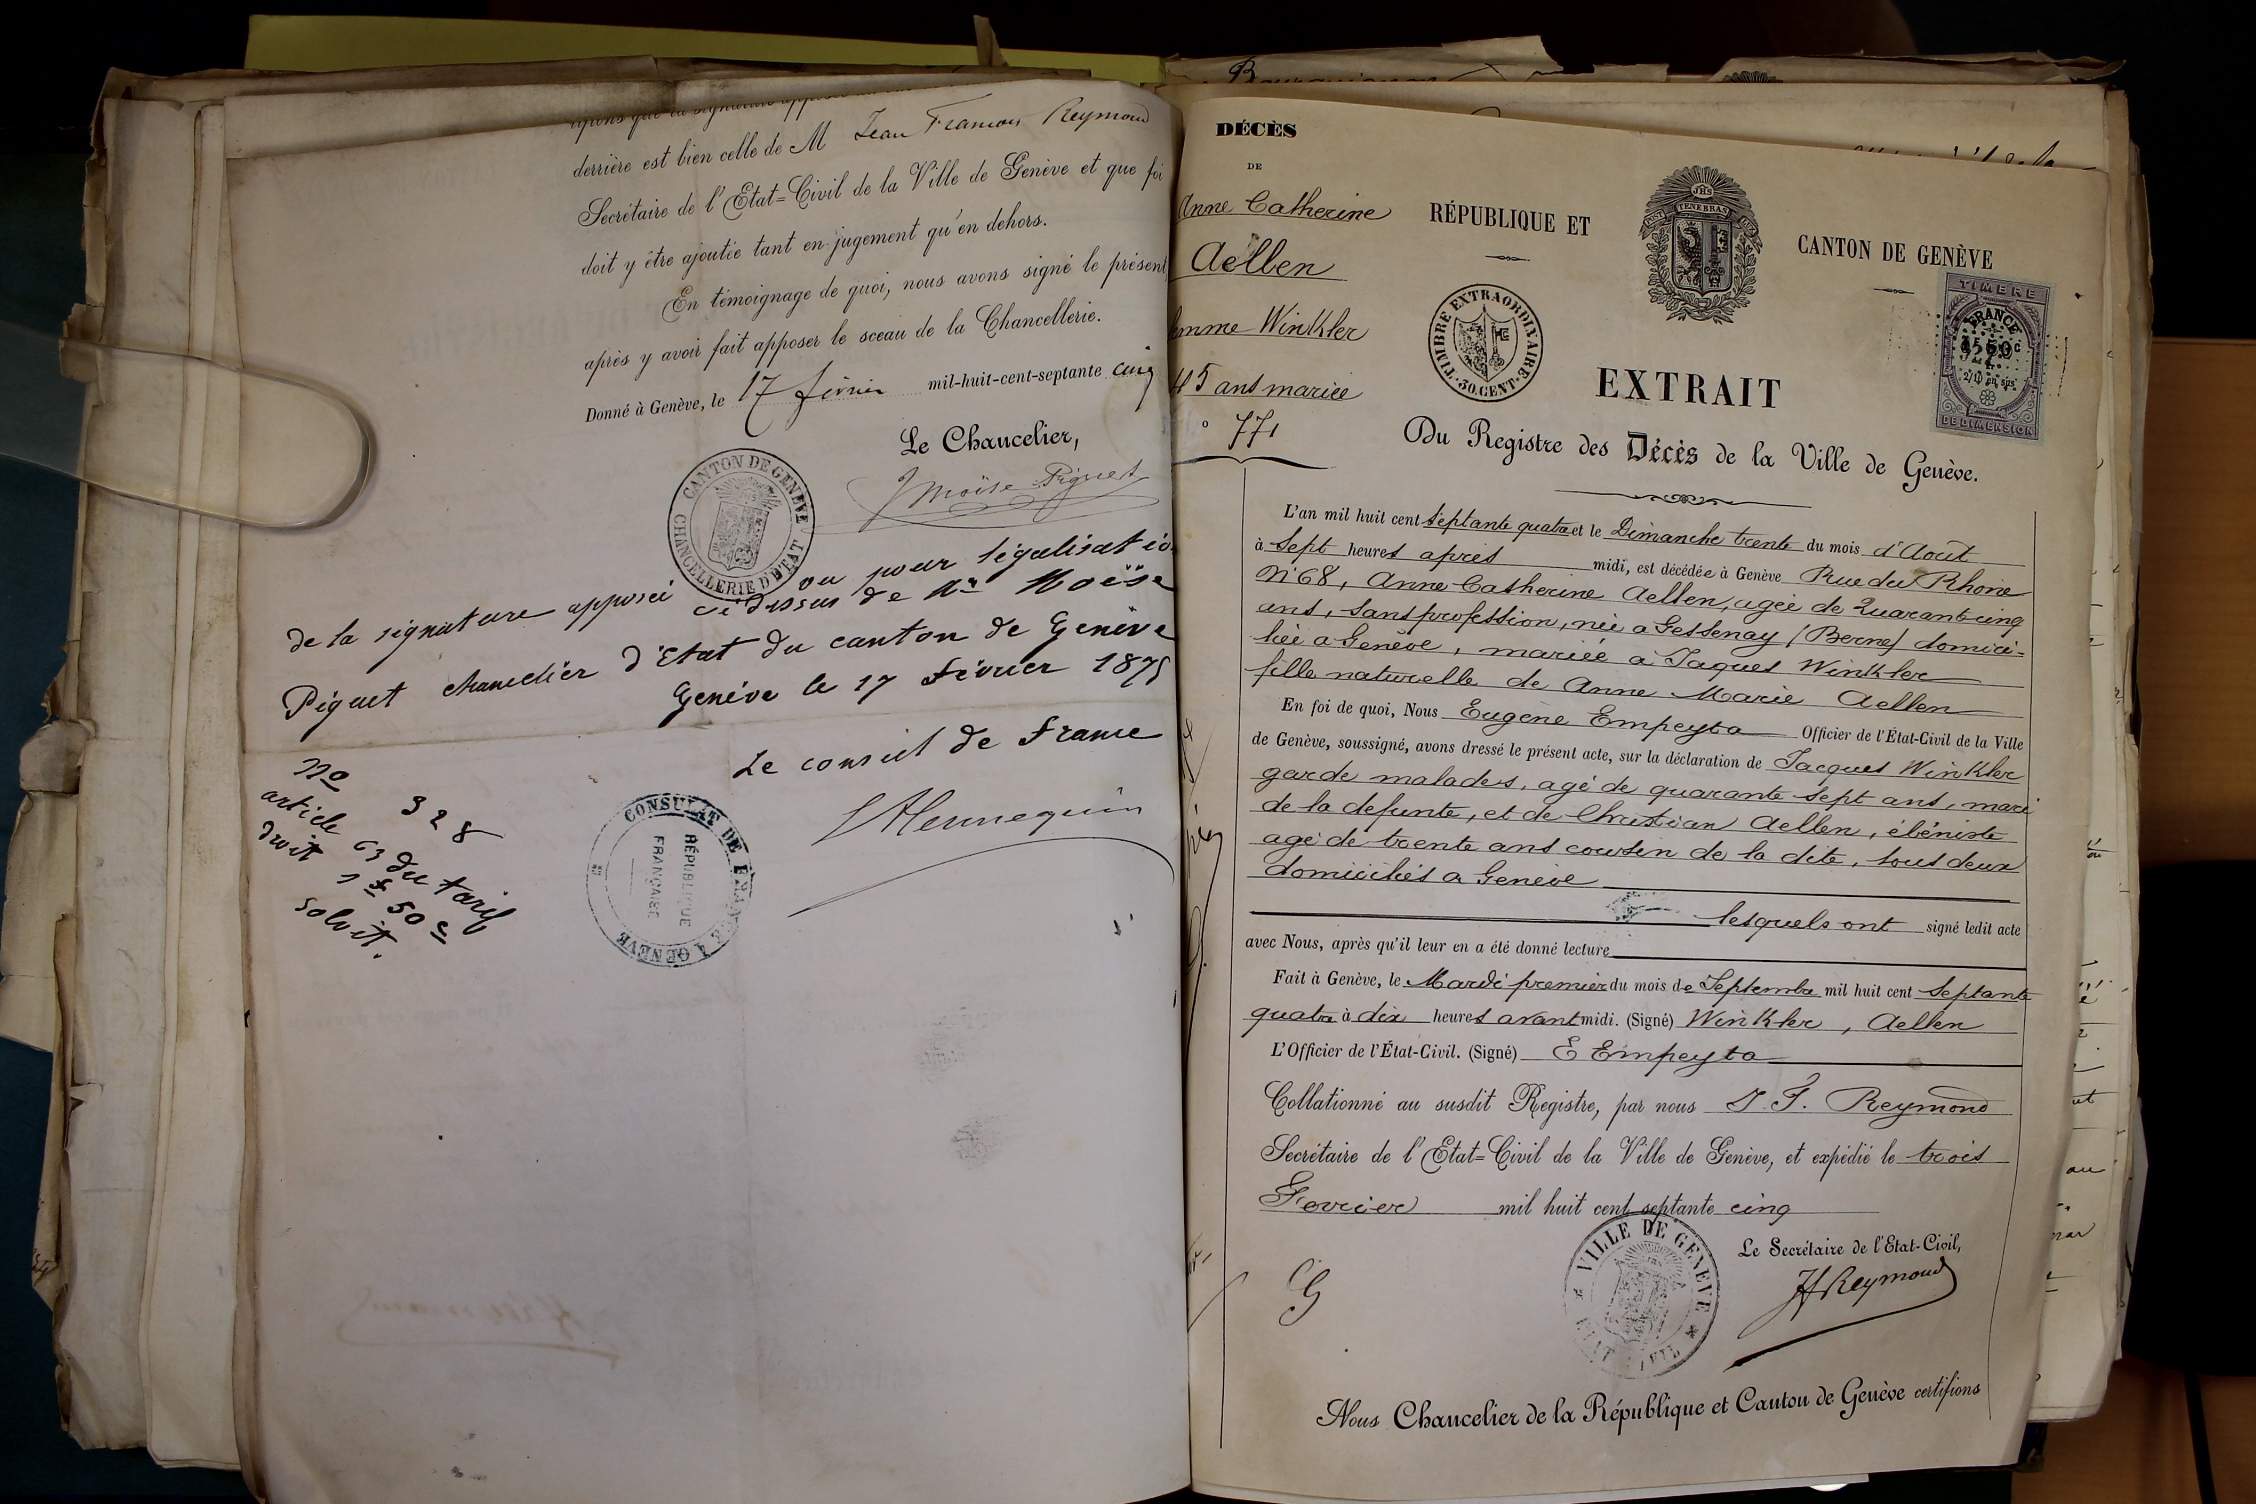 derrière est bien celle de M Jean Francois Reymond
Secrétaire de l'Etat=Civil de la Ville de Genève et que foi
doit y être ajoutée tant en jugement qu'en dehors.
En témoignage de quoi, nous avons signé le présent
après y avoir fait apposer le sceau de la Chancellerie.
Donné à Genève, le 17 février mil-huit-cent-septante cinq
Le Chancelier,
J Moïse Piguet
CANTON DE GENÈVE
CHANCELLERIE D'ETAT
vu pour légalisatio
de la signature apposée ci dessus de Mr Moïse
Piguet chancelier d'Etat du canton de Genève
Genève le 17 février 1875
Le consul de France
Hennequin
CONSULAT DE FRANCE A GENEVE
RÉPUBLIQUE
FRANÇAISE
No 328
article 63 du tarif
droit 1 f 50 c
solvit.
DÉCÈS
DE
Anne Catherine
Aellen
femme Winkler
45 ans mariée
° 771
RÉPUBLIQUE ET
CANTON DE GENÈVE
JHS
POST TENEBRAS LUX
TIMBRE EXTRAORDINAIRE
30. CENT.
TIMBRE
FRANCE
2/10 en sus
DE DIMENSION
EXTRAIT
Du Registre des Décès de la Ville de Genève.
L'an mil huit cent septante quatre et le Dimanche trente du mois d'Août
à sept heures après midi, est décédée à Genève Rue du Rhone
No 68, Anne Catherine Aellen, agée de Quarante cinq
ans, sans profession, née a Gessenay (Berne) domici=
liée a Genève, mariée à Jaques Winkler
fille naturelle de Anne Marie Aellen
En foi de quoi, Nous Eugène Empeyta Officier de l'État-Civil de la Ville
de Genève, soussigné, avons dressé le présent acte, sur la déclaration de Jacques Winkler
garde malades, agé de quarante sept ans, mari
de la defunte, et de Christian Aellen, ébéniste
agé de trente ans cousin de la dite, tous deux
domiciliés a Genève
lesquels ont signé ledit acte
avec Nous, après qu'il leur en a été donné lecture
Fait à Genève, le Mardi premier du mois de Septembre mil huit cent septante
quatre à dix heures avant midi. (Signé) Winkler, Aellen
L'Officier de l'État-Civil. (Signé) E Empeyta
Collationné au susdit Registre, par nous J. F. Reymond
Secrétaire de l'Etat=Civil de la Ville de Genève, et expédié le trois
Fevrier mil huit cent septante cinq
VILLE DE GENEVE
ETAT CIVIL
Le Secrétaire de l'Etat-Civil,
JF Reymond
G
Nous Chancelier de la République et Canton de Genève certifions